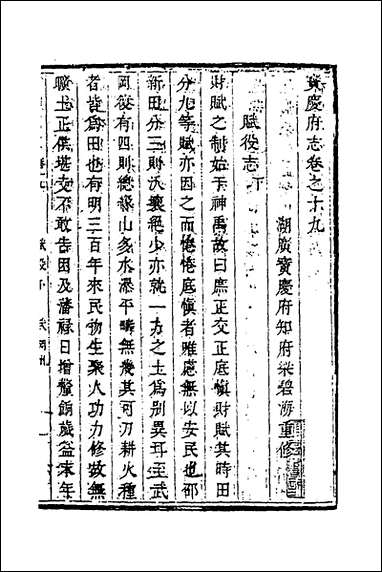 寶慶府志卷之十九
湖廣寶慶府知府梁碧海重修
賦役志下
財賦之制始于神禹故曰庶正交正底慎財賦其時田
分九等賦亦因之而惓惓底慎者雖慮無以安民也邵
新田分三則沃壤絕少亦就一方之土爲別異耳至武
岡役有四則總緣山多水瀑平疇無幾其可刀耕火種
者皆爲田也有明三百年來民物生聚人功力修故無
曠土正供堪支不敢告困及藩祿日增釐餉歲益末年